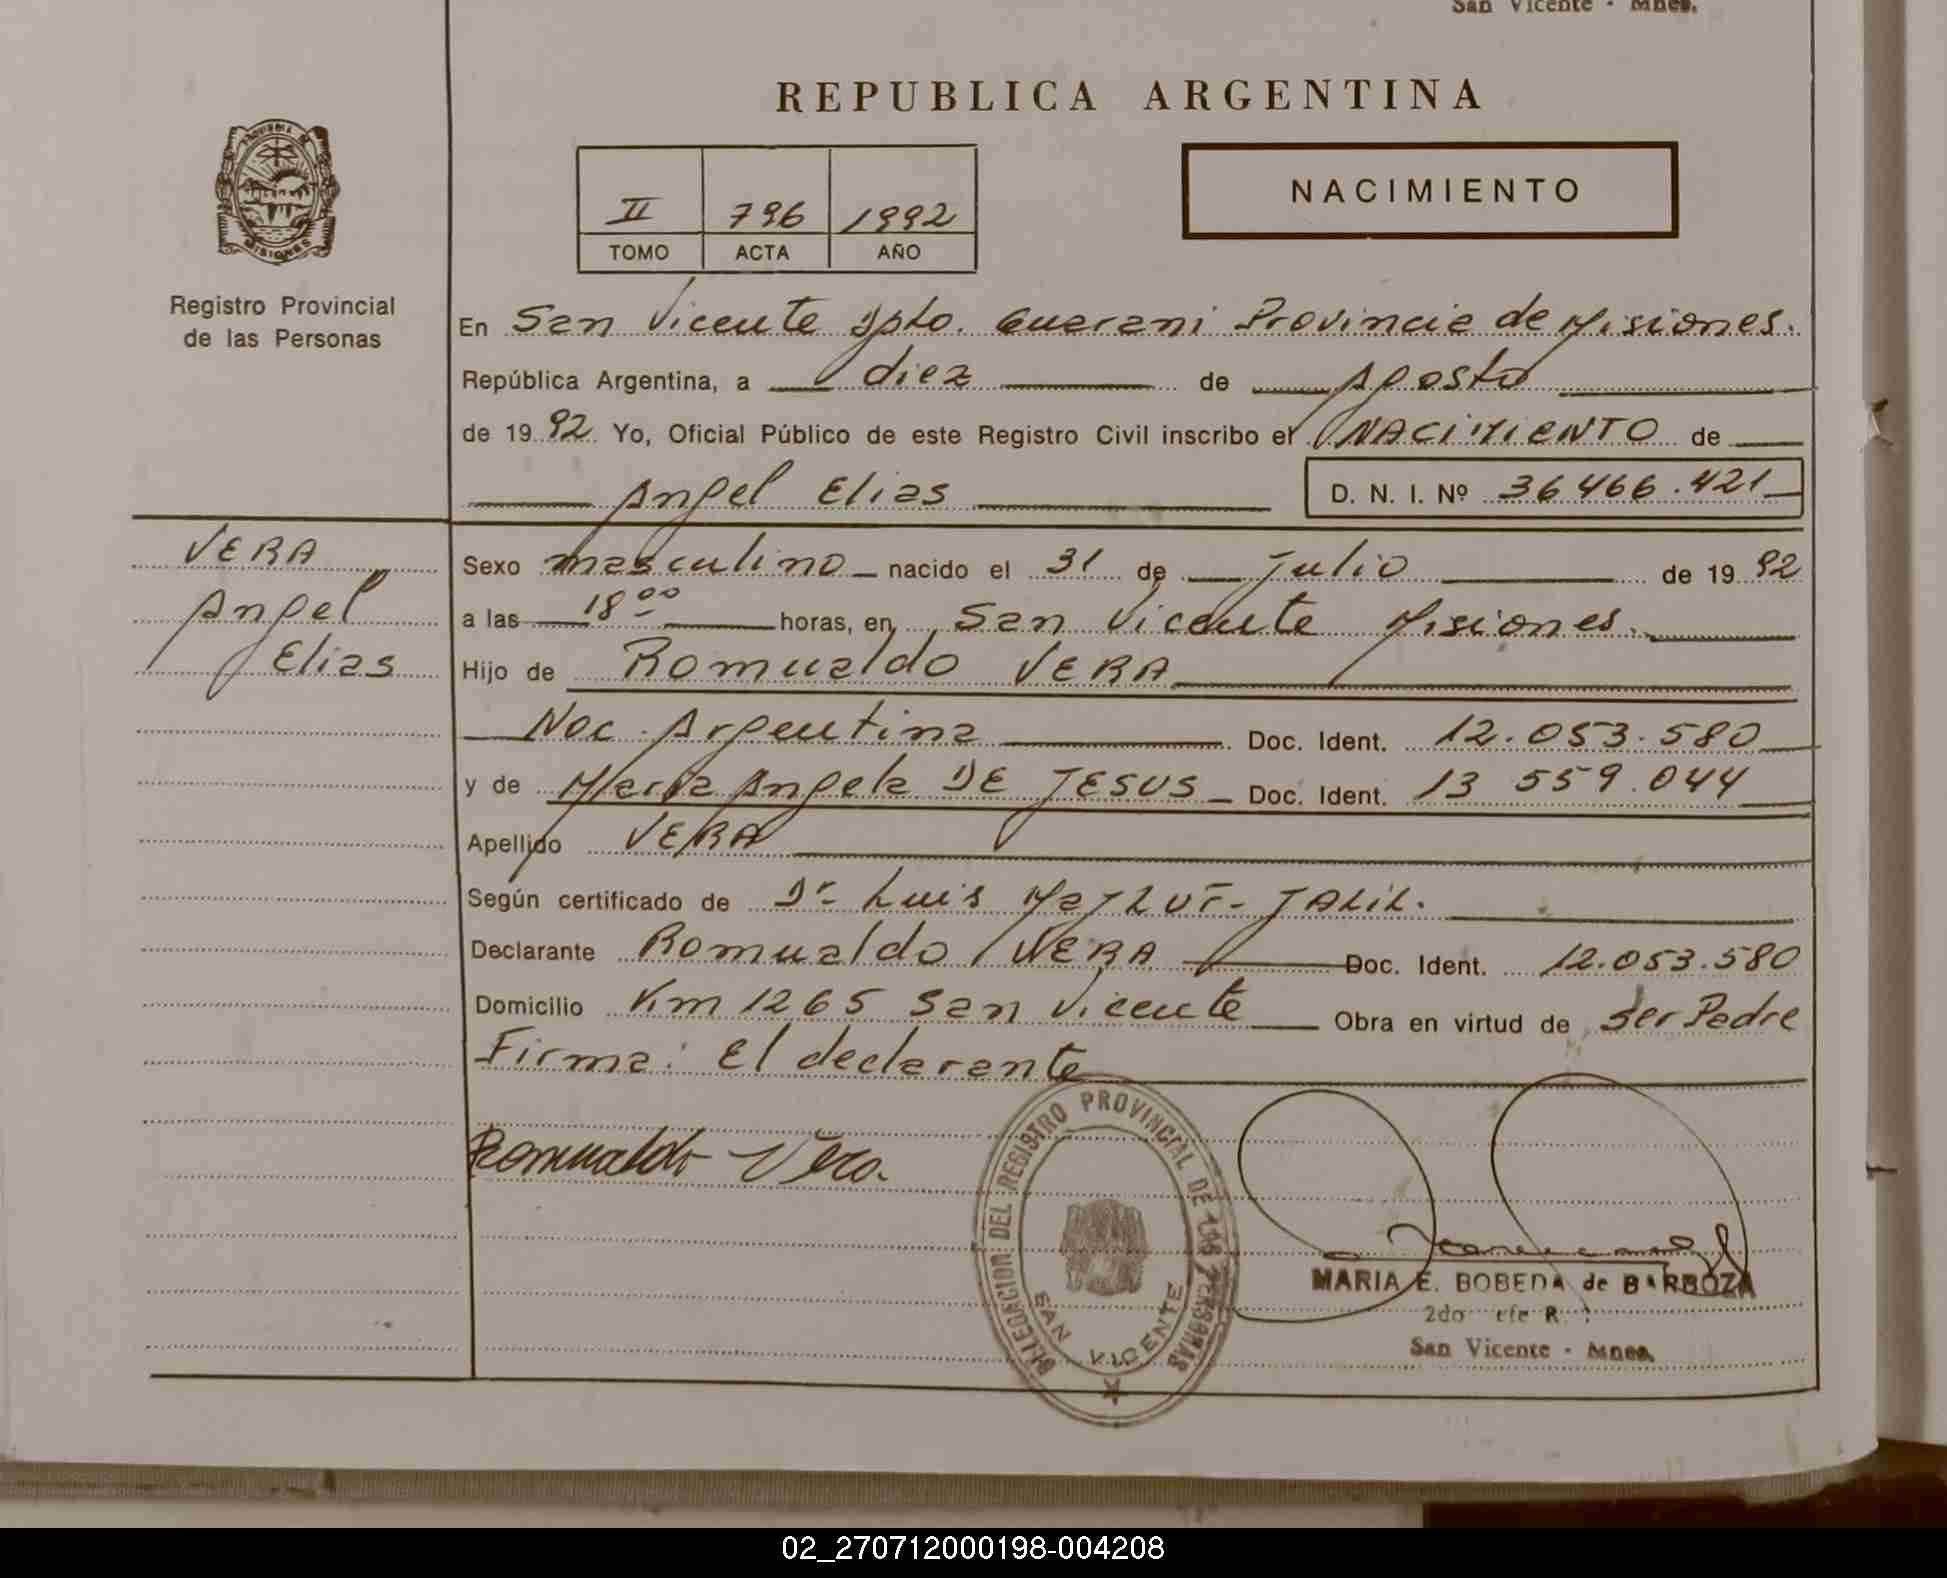 San Vicente - Mnes.
REPUBLICA ARGENTINA
PROVINCIA DE
MISIONES
II 796 1992
TOMO ACTA AÑO
NACIMIENTO
Registro Provincial
de las Personas
En San Vicente Dpto. Guarani Provincia de Misiones.
República Argentina, a diez de Agosto
de 1992 Yo, Oficial Público de este Registro Civil inscribo el NACIMIENTO de
Angel Elias D. N. I. Nº 36466.421
VERA
Angel
Elias
Sexo masculino nacido el 31 de Julio de 1992
a las 18 00 horas, en San Vicente Misiones.
Hijo de Romualdo VERA
Nac. Argentina Doc. Ident. 12.053.580
y de Maria Angela DE JESUS Doc. Ident. 13 559.044
Apellido VERA
Según certificado de Dr Luis JALIL.
Declarante Romualdo VERA Doc. Ident. 12.053.580
Domicilio Km 1265 San Vicente Obra en virtud de Ser Padre
Firma: El declarante
Romualdo Vera.
DELEGACION DEL REGISTRO PROVINCIAL DE LAS PERSONAS
SAN VICENTE
MARIA E. BOBEDA de BARBOZA
2do
San Vicente - Mnes.
02_270712000198-004208